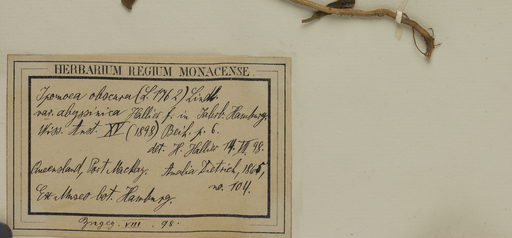 HERBARIUM REGIUM MONACENSE.
Ipomoea obscura (L. 1762) Lindl.
var. abyssinica Hallier f. in Jahrb. Hamburg.
Wiss. Anst. XV (1898) Beih. p. 6.
det. H. Hallier 14. VII. 98.
Queensland, Port Mackay. Amalia Dietrich, 1865,
no. 104.
Ex Museo bot. Hamburg.
VIII. 98.